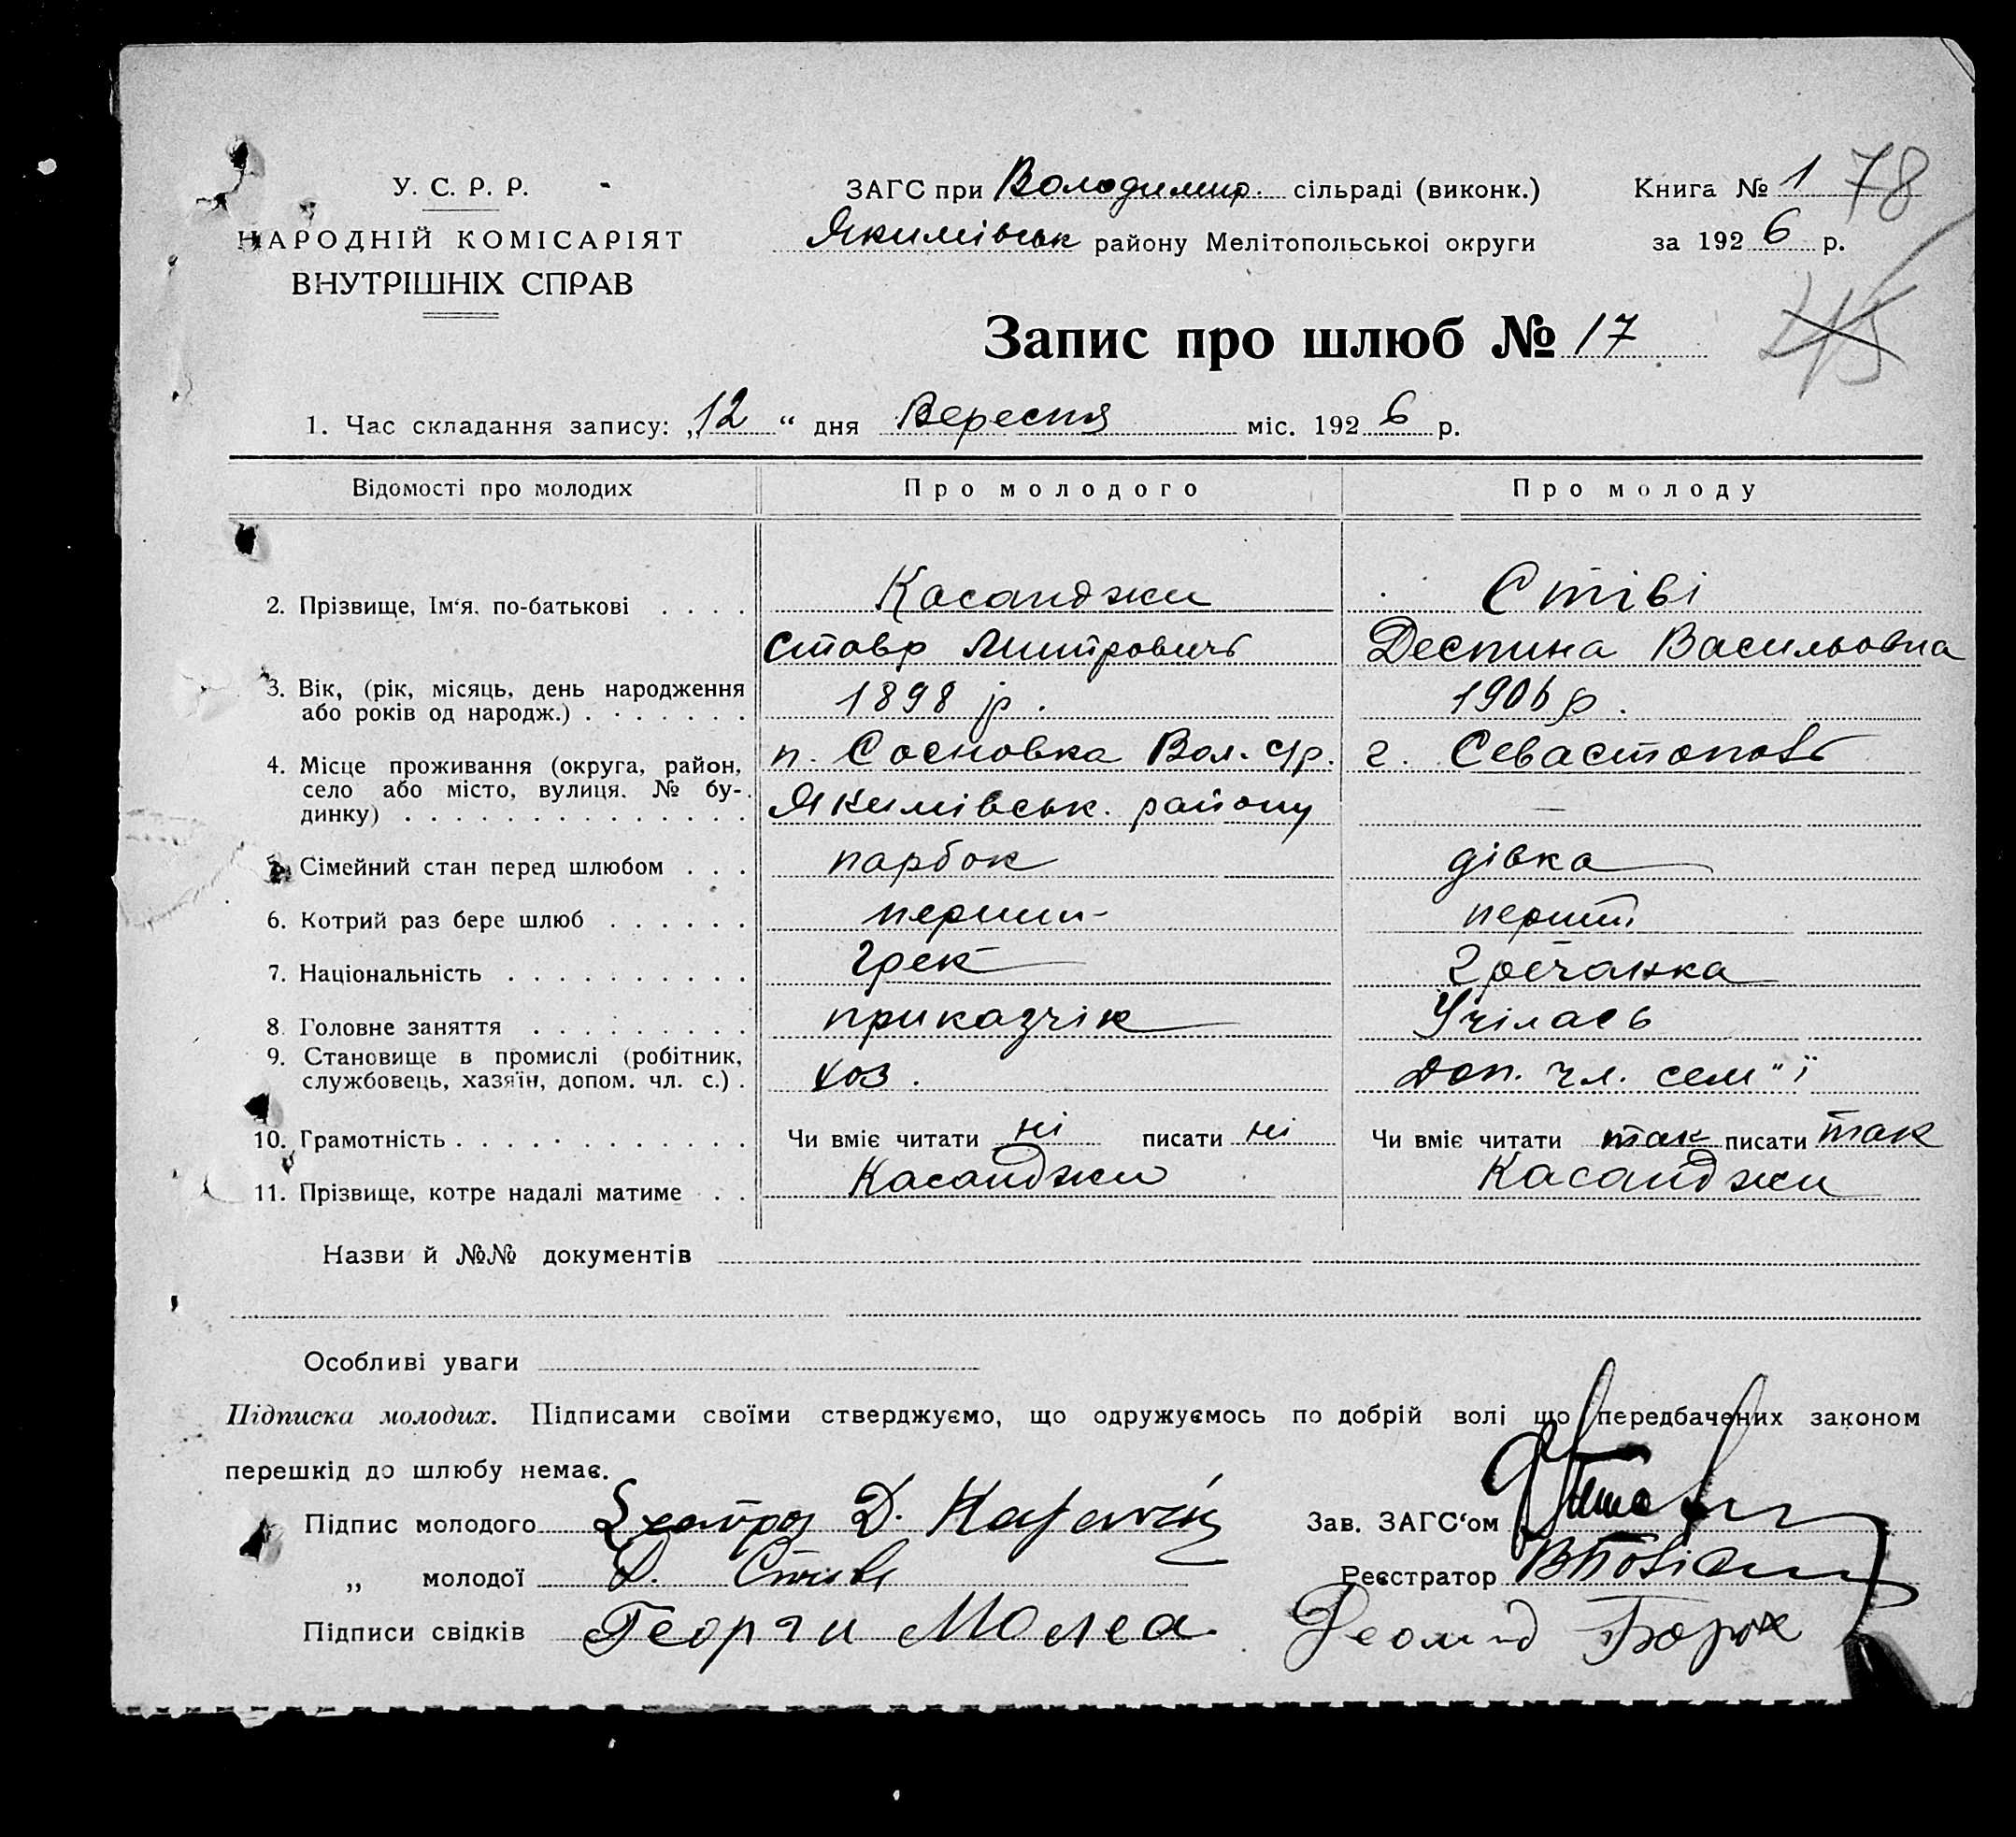 У. С. Р. Р.
НАРОДНІЙ КОМІСАРІЯТ
ВНУТРІШНІХ СПРАВ
ЗАГС при Володимир. сільраді (виконк.)
Якимівськ району Мелітопольської округи
Книга № 1 78
за 1926 р.
215
Запис про шлюб № 17
1. Час складання запису: „12“ дня Вересня міс. 1926 р.
Відомості про молодих Про молодого Про молоду
2. Прізвище, Ім‘я, по-батькові . . . . Касанджи Стіві
Ставр Митровичъ Деспина Васильовна
3. Вік, (рік, місяць, день народження або років од народж.) . . . . . . . 1898 р. 1906 р.
4. Місце проживання (округа, район, п. Сосновка Вол. с/р. г. Севастополь
село або місто, вулиця. № будинку) . . . . . . Якимівськ. району —
5. Сімейний стан перед шлюбом . . . парбок дівка
6. Котрий раз бере шлюб . . . . . . перши- перший
7. Національність . . . . . . . . . . грек гречанка
8. Головне заняття . . . . . . . . . приказчік Учілась
9. Становище в промислі (робітник, службовець, хазяїн, допом. чл. с.) . хоз. Доп. чл. сем"ї
10. Грамотність . . . . . . . . . . . . Чи вміє читати ні писати ні Чи вміє читати так писати так
11. Прізвище, котре надалі матиме . . Касанджи Касанджи
Назви й №№ документів
Особливі уваги
Підписка молодих. Підписами своїми стверджуємо, що одружуємось по добрій волі що передбачених законом
перешкід до шлюбу немає.
Підпис молодого Д. Зав. ЗАГС‘ом
„ молодої Д. Стиве Реєстратор
Підписи свідків Георги Молеа